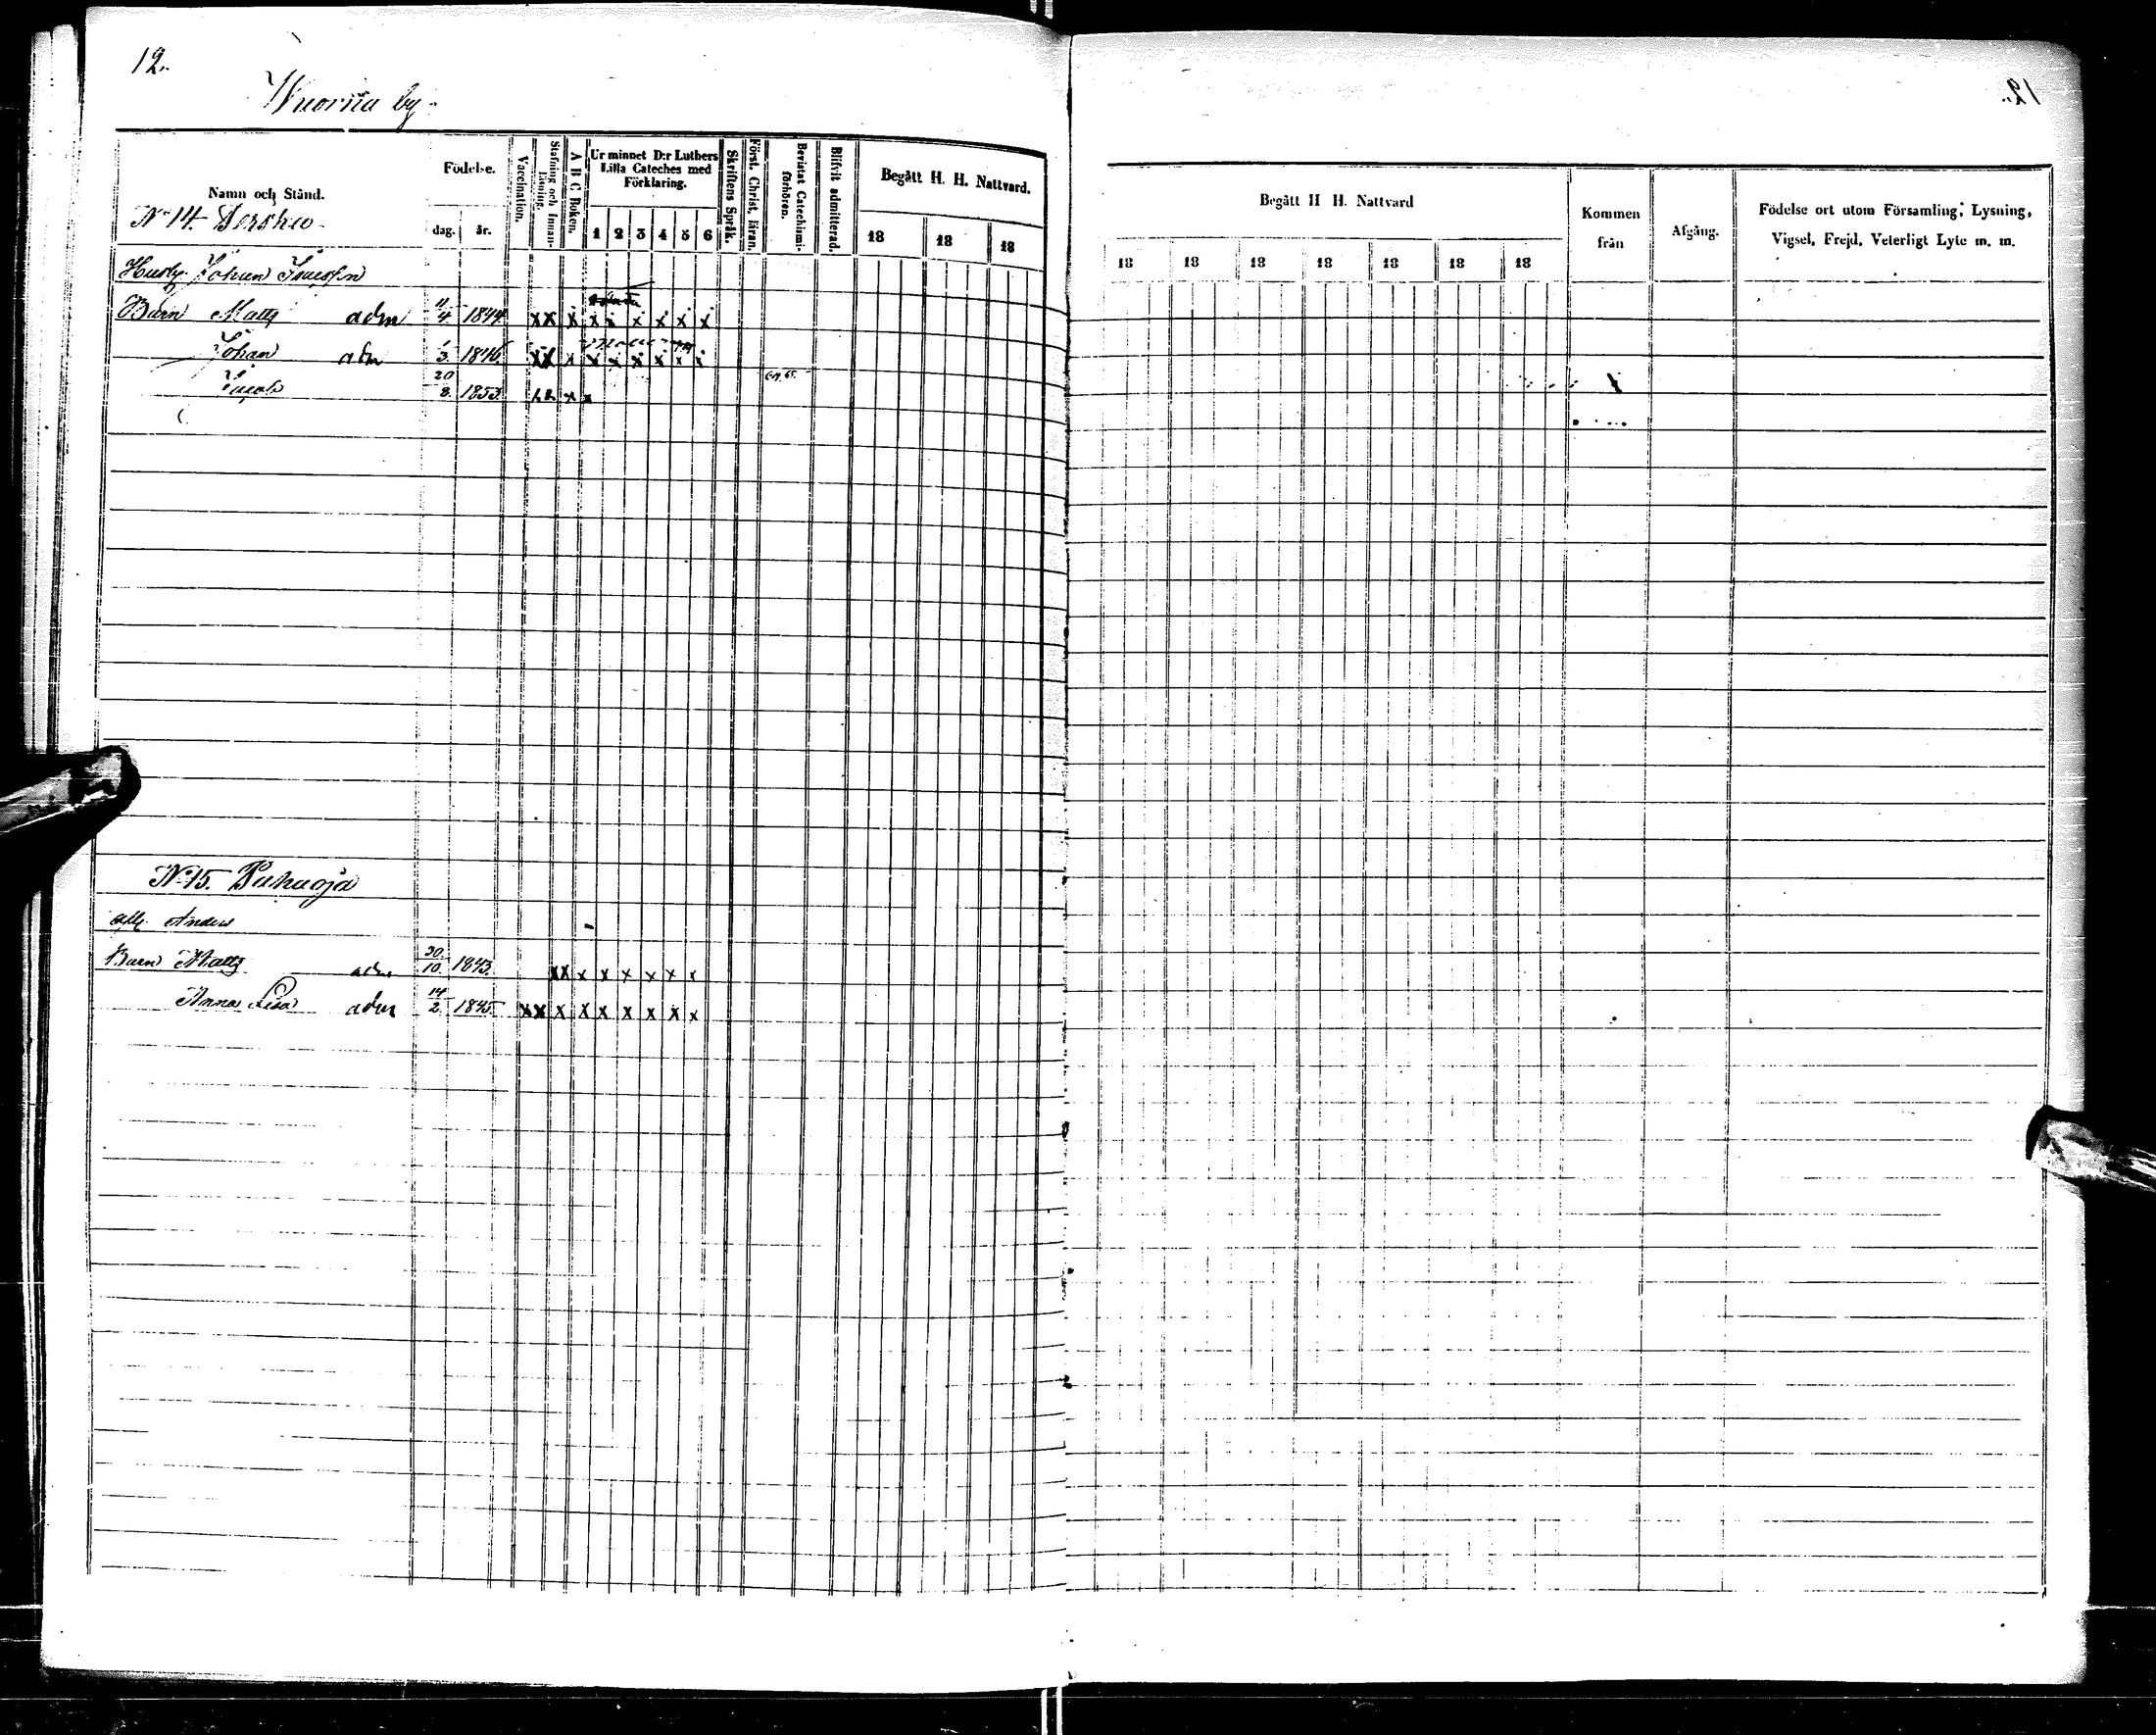 12.
by
Namn och Stånd.
Födelse.
dag. år.
Vaccination.
Stafning och Innanläsning.
A B C. Boken.
Ur minnet D:r Luthers Lilla Cateches med Förklaring.
1 2 3 4 5 6
Skriftens Språk.
Först. Christ. läran.
Bevistat Catechismiförhören.
Blifvit admitterad.
Begått H. H. Nattvard.
18 18 18
No 14.
Johan
Barn Matts adm 11/4 1844 x x x x x x x x x
Johan adm 1/3 1846 x x x x x x x x x
Jacob 20/8. 1853. x x
No 15.
Barn Matts adm 30./10. 1843. x x x x x x x x x
Anna Lisa adm 14/2 1845. x x x x x x x x x
12.
Begått H H. Nattvard
18 18 18 18 18 18 18
Kommen från
Afgång.
Födelse ort utom Församling; Lysning,
Vigsel, Frejd, Veterligt Lyte m. m.